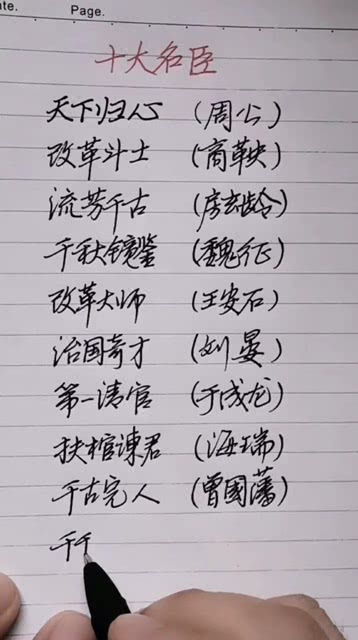 Date.
Page.
十大名臣
天下归心 (周公)
改革斗士 (商鞅)
流芳千古 (房玄龄)
千秋镜鉴 (魏征)
改革大师 (王安石)
治国奇才 (刘晏)
第一清官 (于成龙)
扶棺谏君 (海瑞)
千古完人 (曾國藩)
千